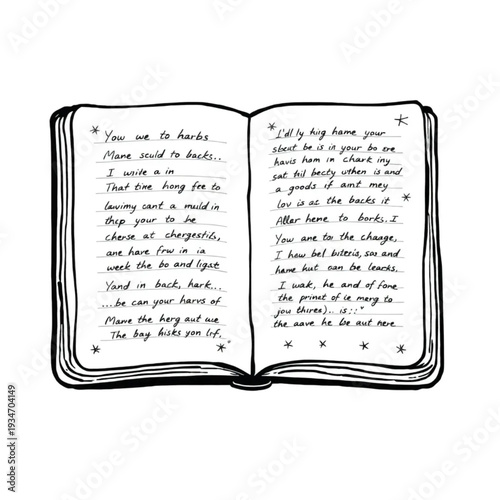 You we to harbs
Mane sculd to backs..
I write a in
That tine hong fee to
lawimy cant a muild in
thcp your to be
cherse at chergestils,
ane hare frw in ia
week the bo and ligst
Yand in back, hark...
...be can your harvs of
Mawe the herg aut we
The bay hisks yon lif.
I'dl ly hig hame your
sbeut be is in your bo ere
havis ham in chark iny
sat thl becty uthen is and
a goods if amt mey
lov is as the backs it
Aller hene to borks. I
You ane to the chauge,
I hew bel biteris, sos and
hame hut oan be learks.
I wak, he and of fone
the prinet of ie merg to
jou thires).. is::"
the aave he be aut nere
Adobe Stock | #1934704149